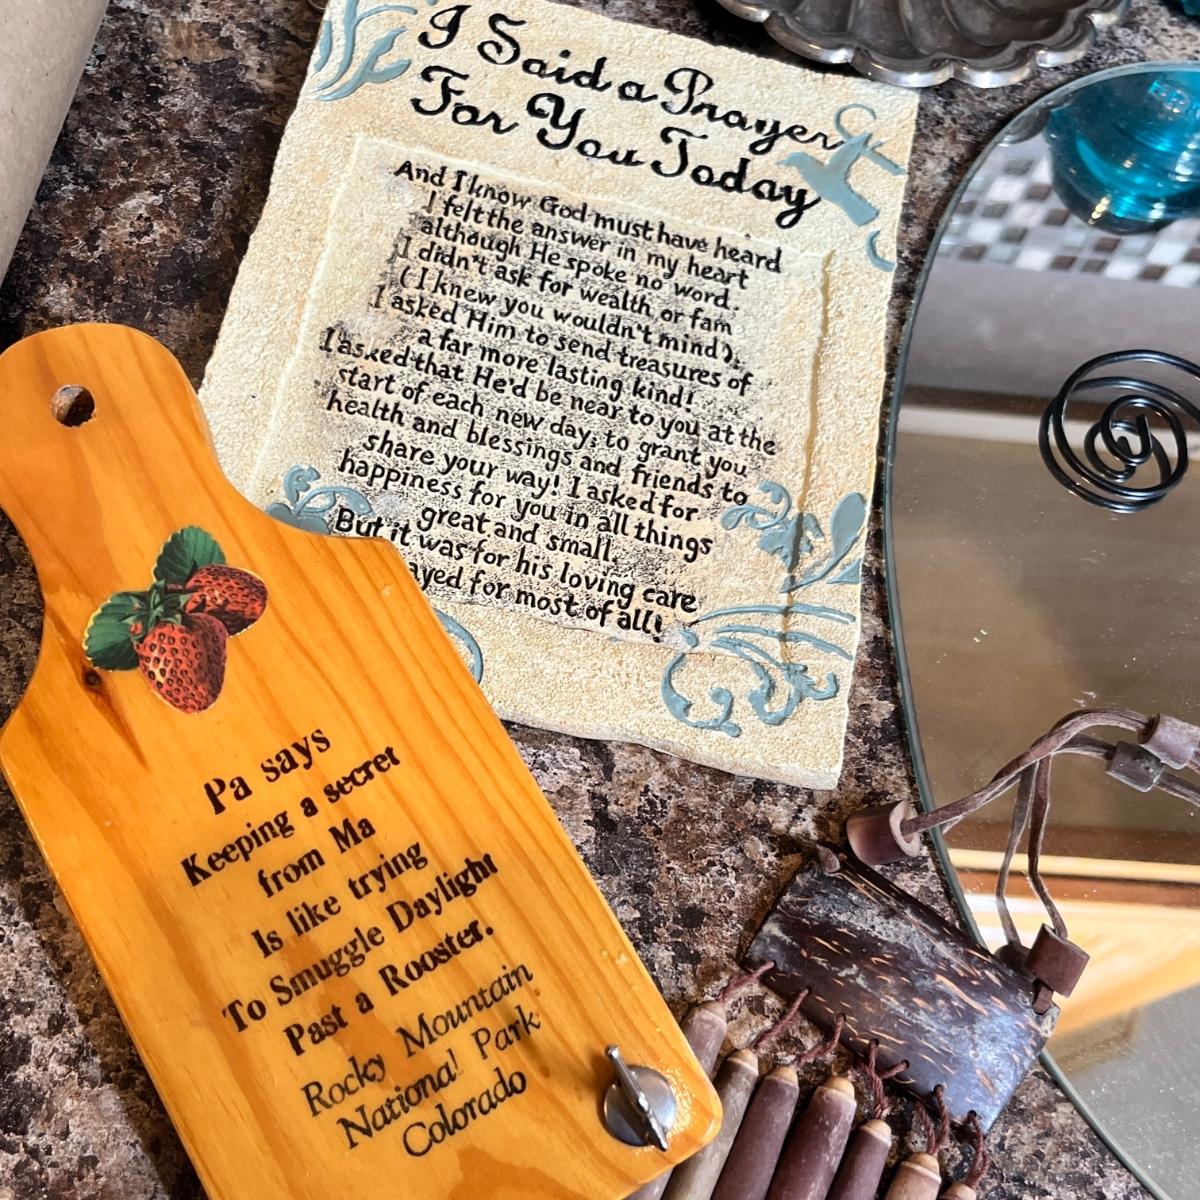 I Said a Prayer
For You Today
And I know God must have heard
I felt the answer in my heart
although He spoke no word.
I didn't ask for wealth or fam
(I knew you wouldn't mind).
I asked Him to send treasures of
a far more lasting kind!
I asked that He'd be near to you at the
start of each new day; to grant you
health and blessings and friends to
share your way! I asked for
happiness for you in all things
great and small.
But it was for his loving care
ayed for most of all!
Pa says
Keeping a secret
from Ma
Is like trying
To Smuggle Daylight
Past a Rooster.
Rocky Mountain
National Park
Colorado